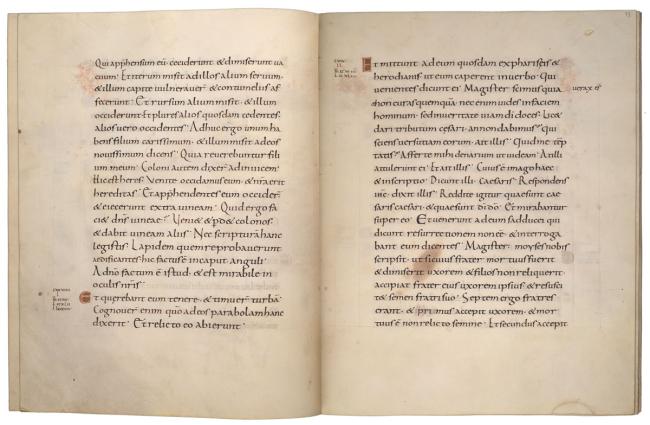 Qui apphensum eū cociderunt & dimiserunt va
cuum· Et iterum misit ad illos alium servum·
& illum capite vulneraver̄ & contumeliis af
fecerunt· Et rursum alium misit· & illum
occiderunt· Et plures alios quosdam cedentes·
alios vero occidentes· Adhuc ergo unum ha
bens filium carissimum· & illum misit ad eos
novissimum dicens· Quia reverebuntur filiu
um meum· Coloni autem dixer̄ ad invicem·
Hic est heres· Venite occidamus eum· & nr̄a erit
hereditas· Et apphendentes eum occider̄
& eiecerunt extra vineam· Quid ergo fa
ci& dn̄s vineae· Veni& & pd& colonos·
& dabit vineam aliis· Nec scripturā hanc
legistis· Lapidem quem reprobaverunt
aedificantes· hic factus e in caput anguli·
A dn̄o factum ē istud· & est mirabile in
oculis nr̄is·
Et querebant eum tenere· & timuer̄ turbā·
Cognover̄ enim qu̅o ad eos parabolam hanc
dixerit· Et relicto eo abierunt·
Et mittunt ad eum quosdam ex phariseis &
herodianis ut eum caperent in verbo· Qui
venientes dicunt ei· Magister scimus quia
verax es
& non curas quemquā· nec enim vides in faciem
hominum· sed in veritate viam dī doces· Lic&
dari tributum cesari· an non dabimus· qui
sciens versutiam eorum· ait illis· Quid me tēp
tatis· Afferte mihi denarium ut videam· At illi
attulerunt ei· Et ait illis· Cuius ē imago haec
& inscriptio· Dicunt illi· Caesaris· Respondens
ihc· dixit illis· Reddite igitur quae sunt cae
saris caesari· & quae sunt dī dō· Et mirabantur
super eo· Et venerunt ad eum sadducei qui
dicunt resurrectionem non eē· & interroga
bant eum dicentes· Magister· moyses nobis
scripsit· ut si cuius frater mortuus fuerit
& dimiserit uxorem & filios non reliquerit·
accipiat frater eius uxorem ipsius & resusci
t& semen fratri suo· Septem ergo fratres
erant· & primus accepit uxorem· & mor
tuus ē non relicto semine· Et secundus accepit